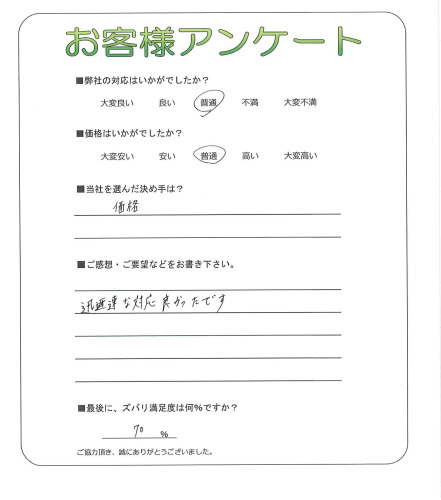 お客様アンケート
■弊社の対応はいかがでしたか？
大変良い 良い 普通 不満 大変不満
■価格はいかがでしたか？
大変安い 安い 普通 高い 大変高い
■当社を選んだ決め手は？
価格
■ご感想・ご要望などをお書き下さい。
迅速な対応良かったです
■最後に、ズバリ満足度は何％ですか？
70 ％
ご協力頂き、誠にありがとうございました。